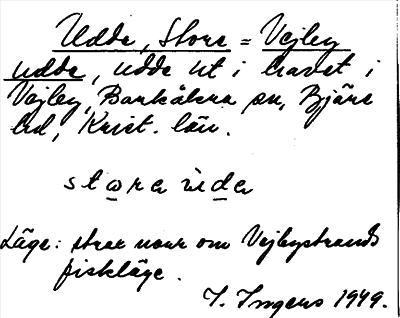 Udde, Stora = Vejby
udde, udde ut i havet i
Vejby, Barkåkra sn, Bjäre
hd, Krist. län.
stora ùda
Läge: strax norr om Vejbystrands
fiskläge.
I. Ingers 1949.